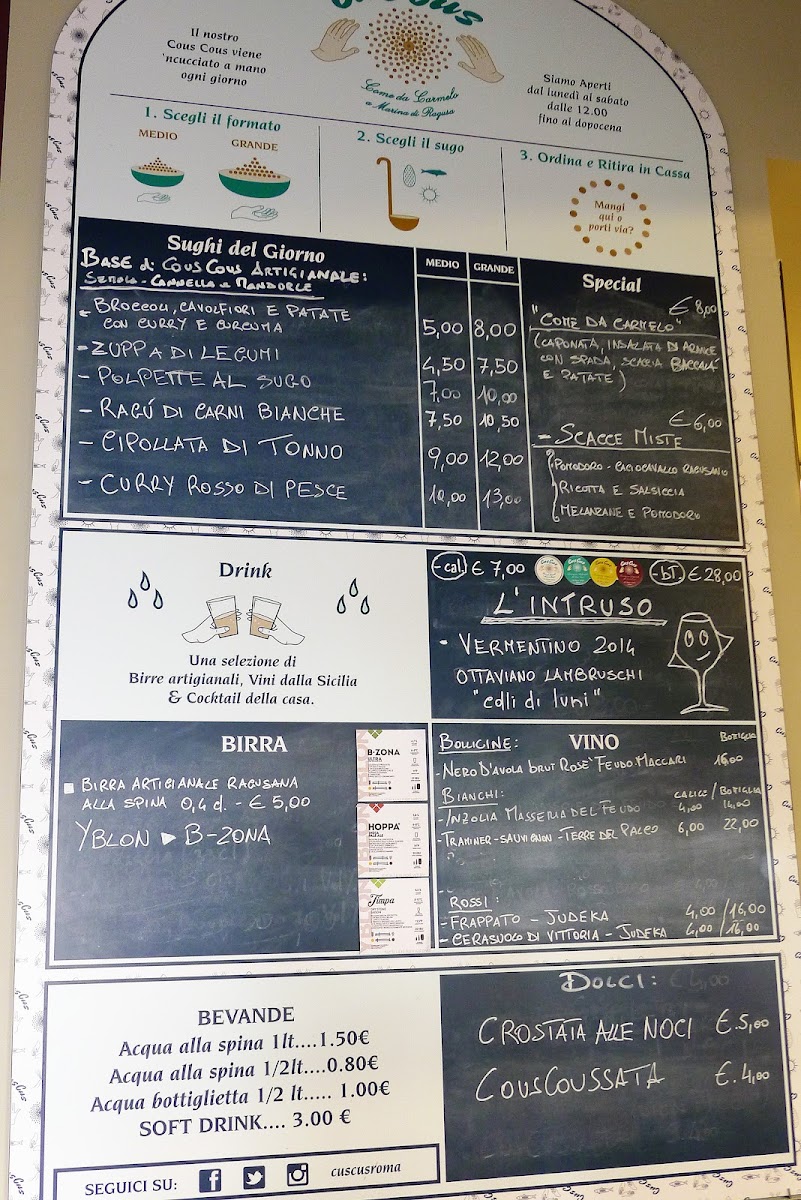 Il nostro
Cous Cous viene
'ncucciato a mano
ogni giorno
Come da Carmelo
a Marina di Ragusa
Siamo Aperti
dal lunedì al sabato
dalle 12.00
fino al dopocena
1. Scegli il formato
MEDIO
GRANDE
2. Scegli il sugo
3. Ordina e Ritira in Cassa
Mangi
qui o
porti via?
Sughi del Giorno
MEDIO GRANDE
BASE di COUS COUS ARTIGIANALE:
SEMOLA - CANNELLA e MANDORLE
- BROCCOLI, CAVOLFIORI E PATATE
CON CURRY E CURCUMA 5,00 8,00
- ZUPPA DI LEGUMI 4,50 7,50
- POLPETTE AL SUGO 7,00 10,00
- RAGÚ DI CARNI BIANCHE 7,50 10,50
- CIPOLLATA DI TONNO 9,00 12,00
- CURRY ROSSO DI PESCE 10,00 13,00
Special
€ 8,00
"COME DA CARMELO"
(CAPONATA, INSALATA DI ARANCE
CON SPADA, SCACCIA BACCALÁ
E PATATE)
€ 6,00
- SCACCE MISTE
POMODORO - CACIOCAVALLO RAGUSANO
RICOTTA E SALSICCIA
MELANZANE E POMODORO
Drink
Una selezione di
Birre artigianali, Vini dalla Sicilia
& Cocktail della casa.
- cal. € 7,00 - bT. € 28,00
L'INTRUSO
• VERMENTINO 2014
OTTAVIANO LAMBRUSCHI
"colli di luni"
BIRRA
BIRRA ARTIGIANALE RAGUSANA
ALLA SPINA 0,4 cl. - € 5,00
YBLON ► B-ZONA
B-ZONA
HOPPA'
Timpa
VINO
BOLLICINE: BOTTIGLIA
- NERO D'AVOLA BRUT ROSE' FEUDO MACCARI 16,00
BIANCHI: CALICE / BOTTIGLIA
- INZOLIA MASSERIA DEL FEUDO 4,00 14,00
- TRAMINER-SAUVIGNON - TERRE DEL PALEO 6,00 22,00
ROSSI:
- FRAPPATO - JUDEKA 4,00 / 16,00
- CERASUOLO DI VITTORIA - JUDEKA 4,00 / 16,00
BEVANDE
Acqua alla spina 1lt....1.50€
Acqua alla spina 1/2lt....0.80€
Acqua bottiglietta 1/2 lt..... 1.00€
SOFT DRINK.... 3.00 €
SEGUICI SU: cuscusroma
DOLCI:
CROSTATA ALLE NOCI €.5,00
COUSCOUSSATA €.4,00